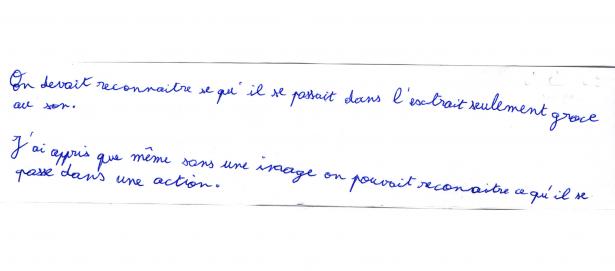 On devait reconnaitre se qu'il se passait dans l'esctrait seulement grace
au son.
J'ai appris que même sans une image on pouvait reconaitre ce qu'il se
passe dans une action.